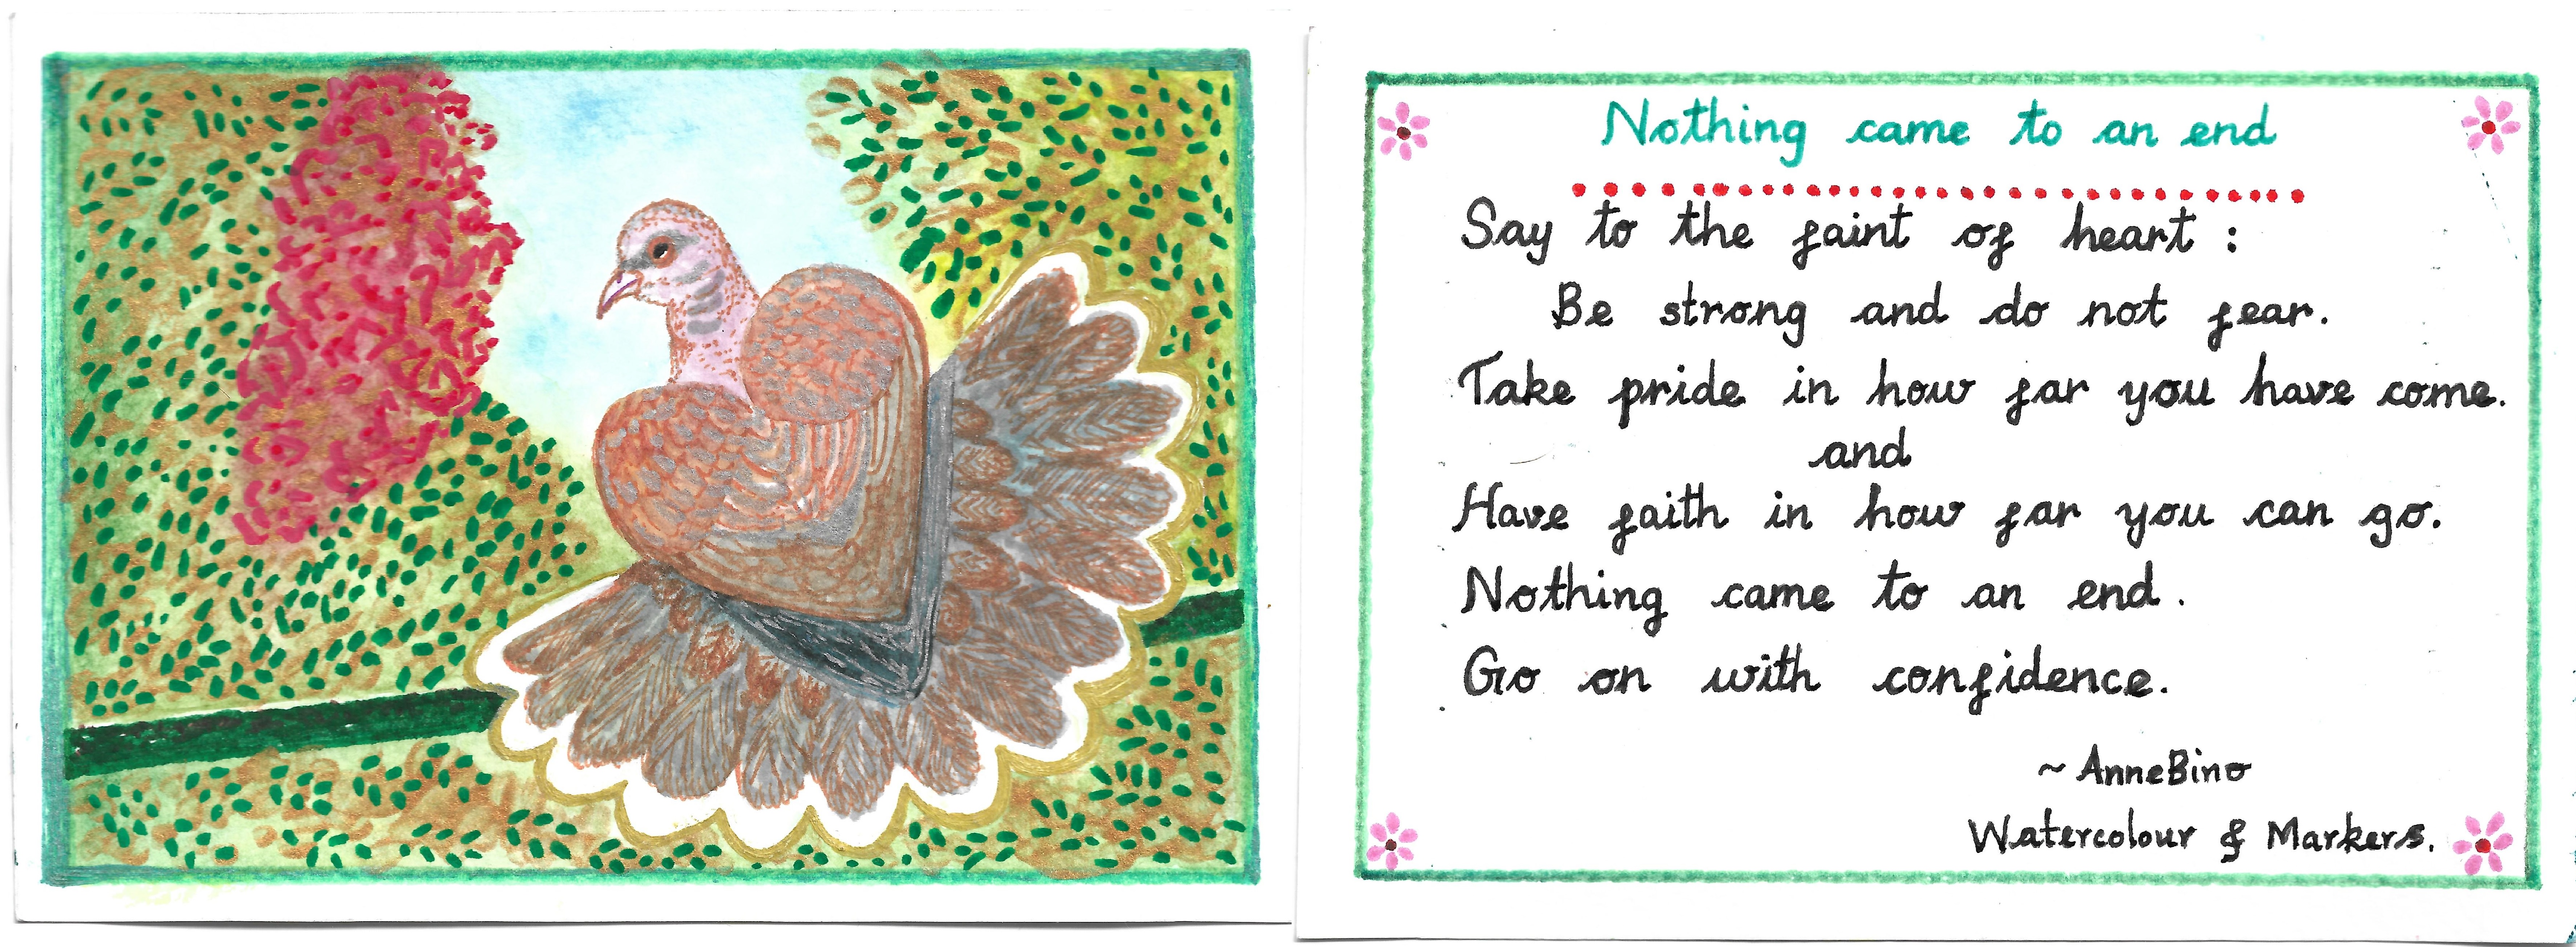 Nothing came to an end
Say to the faint of heart :
Be strong and do not fear.
Take pride in how far you have come.
and
Have faith in how far you can go.
Nothing came to an end.
Go on with confidence.
~ AnneBino
Watercolour & Markers.